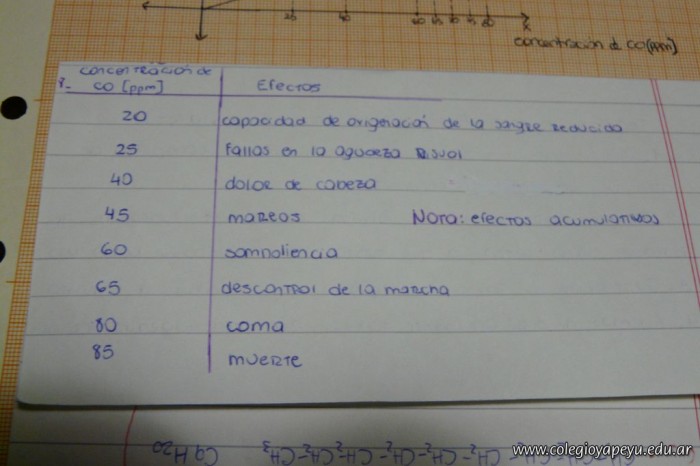 x
concentración de CO [ppm]
concentración de
8- CO [ppm] Efectos
20 capacidad de oxigenación de la sangre reducida
25 fallas en la agudeza visual
40 dolor de cabeza
45 mareos Nota: efectos acumulativos
60 somnoliencia
65 descontrol de la marcha
80 coma
85 muerte
C9 H20
www.colegioyapeyu.edu.ar